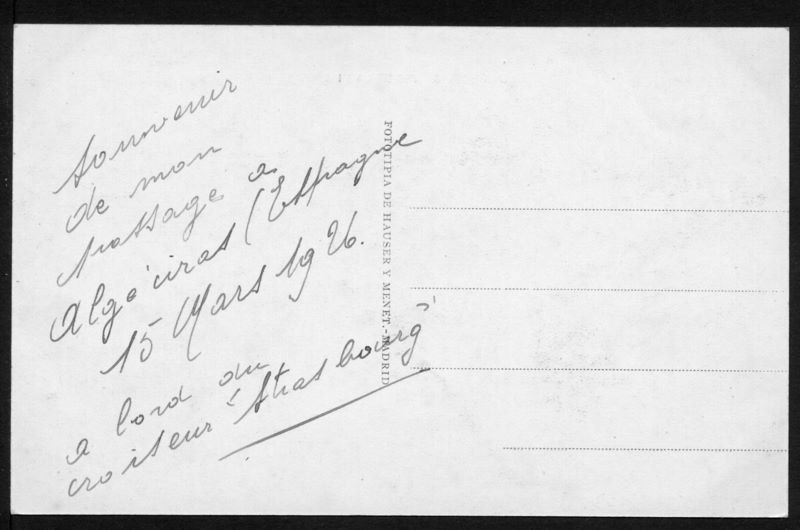 Souvenir
de mon
passage a
Algéciras (Espagne
15 Mars 1926.
a bord du
croiseur "Strasbourg"
FOTOTIPIA DE HAUSER Y MENET.-MADRID